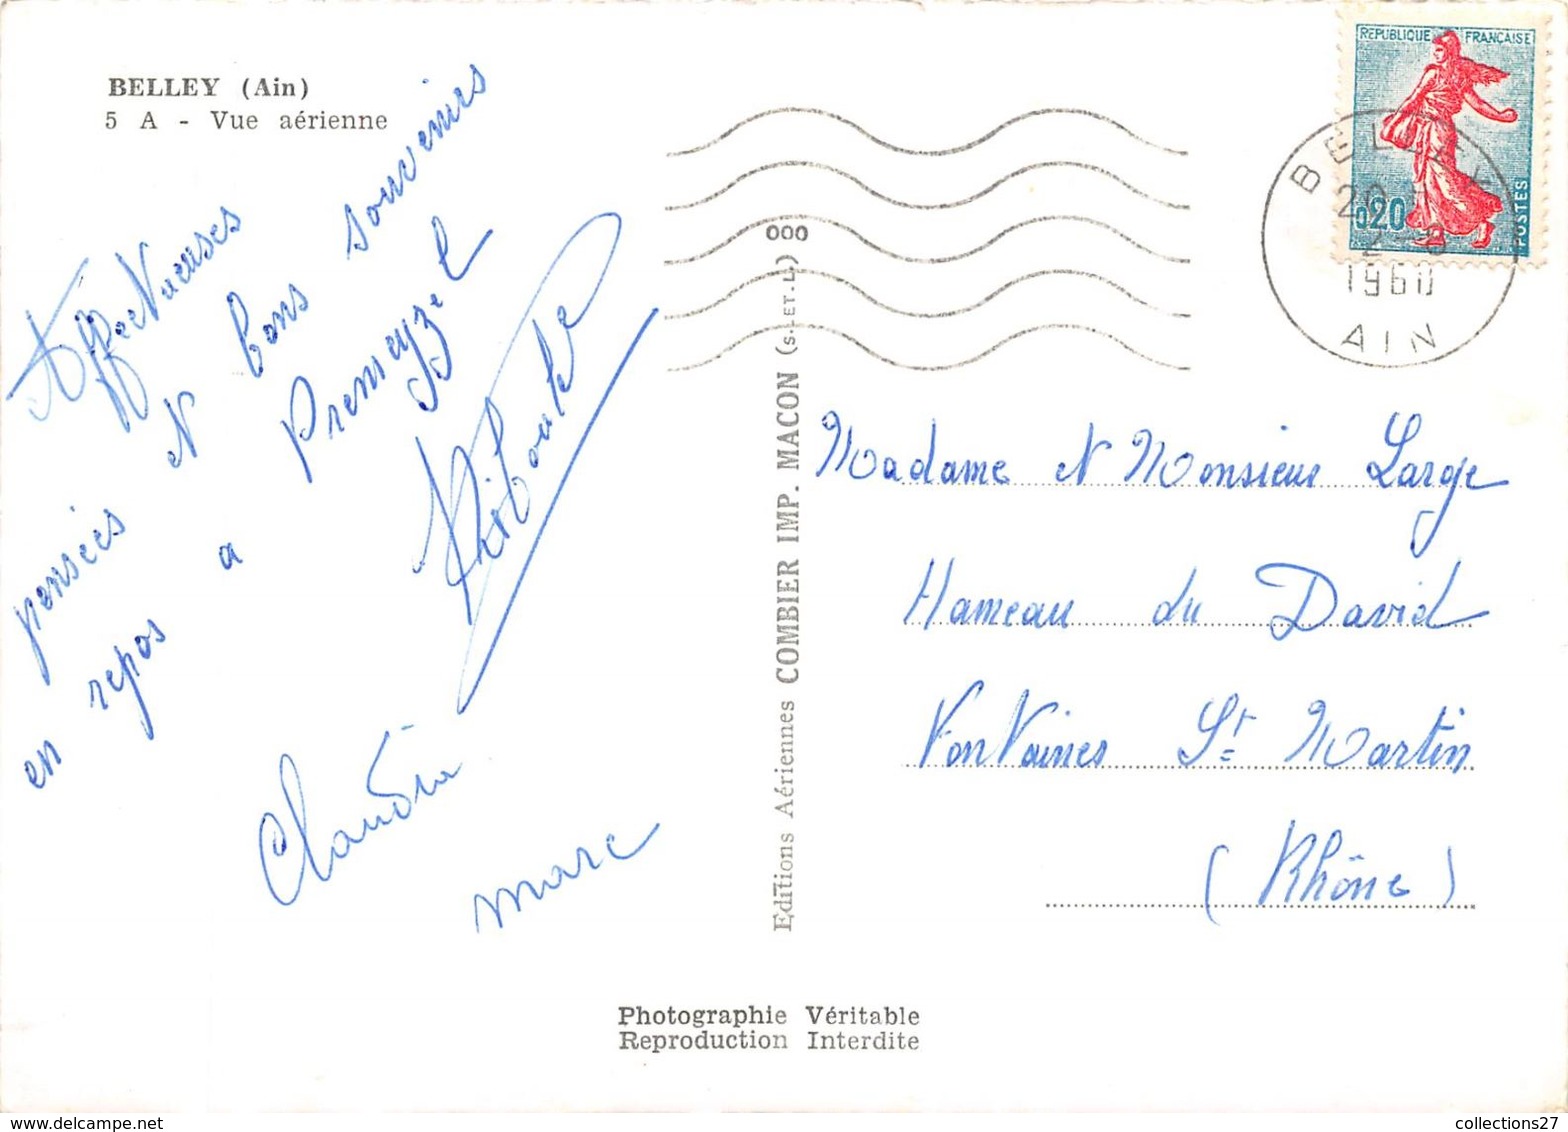 BELLEY (Ain)
5 A - Vue aérienne
Affectueuses
pensées et bons souvenirs
en repos a Premeyzel
Claudia
marc
Editions Aériennes COMBIER IMP. MACON (S.-ET-L.) 000
REPUBLIQUE FRANÇAISE
0,20
POSTES
BELLEY
20 H
2-8
1960
AIN
Madame et Monsieur Large
Hameau du David
Fontaines St Martin
(Rhône)
Photographie Véritable
Reproduction Interdite
collections27